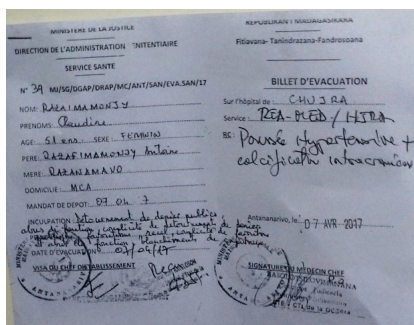 MINISTERE DE LA JUSTICE
DIRECTION DE L'ADMINISTRATION PENITENTIAIRE
SERVICE SANTE
N° 39 MJ/SG/DGAP/DRAP/MC/ANT/SAN/EVA.SAN/17
NOM: RAZAIMAMONJY
PRENOMS: Claudine
AGE 51 ans SEXE FEMININ
PERE: RAZAFIMAMONJY Antoine
MERE RAZANAMAVO
DOMICILIE MCA
MANDAT DE DEPOT: 09 04 7
INCULPATION: Détournement de deniers publics
abus de fonction, complicité de détournement de deniers
DATE D'EVACUATION
VU DU CHEF D'ETABLISSEMENT
REPUBLIKAN'I MADAGASIKARA
Fitiavana- Tanindrazana-Fandrosoana
BILLET D'EVACUATION
Sur l'hôpital de: CHUJRA
Service: REA-MED / HJRA
RE: Poussée Hypertensive +
calcification intracranienne
Antananarivo, le 07 AVR 2017
SIGNATURE MEDECIN CHEF